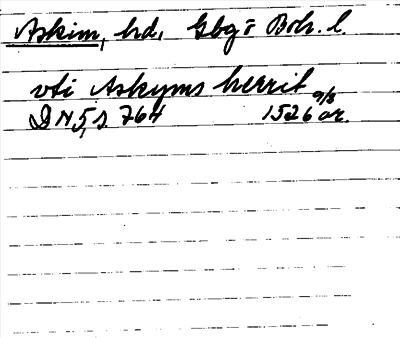 Askim, hd, Gbg o Boh. l.
vti Askyms herrit
DN 5, s 764 1526 9/8 or.